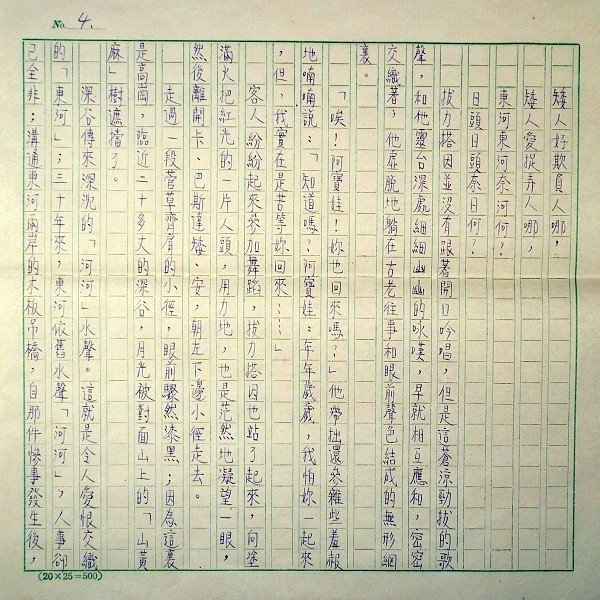 No. 4.
矮人好欺負人哪,
矮人愛捉弄人哪,
東河東河奈何?
日頭日頭奈日何?
拔力搭因並沒有跟著開口吟唱,但是這蒼涼勁拔的歌
聲,和他靈台深處細細幽幽的咏嘆,早就相互應和,密密
交織著;他虛脫地躺在古老往事和眼前聲色結成的無形網
裏。
「唉!阿寶娃!妳也回來嗎?」他帶拙還參雜些羞赧
地喃喃說:「知道嗎?阿寶娃:年年歲歲,我怕妳一起來
,但,我實在是苦等妳回來……」
客人紛紛起來參加舞蹈,拔力搭因也站了起來,向塗
滿火把紅光的一片人頭,用力地,也是茫然地凝望一眼,
然後離開卡、巴斯達矮、安,朝左下邊小徑走去。
走過一段菅草齊肩的小徑,眼前驟然漆黑;因為這裏
是高崗,臨近二十多丈的深谷,月光被對面山上的「山黃
麻」樹遮擋了。
深谷傳來深沈的「河河」水聲。這就是令人愛恨交織
的「東河」;三十年來,東河依舊水聲「河河」,人事卻
已全非;溝通東河兩岸的木板吊橋,自那件慘事發生後,
(20×25=500)